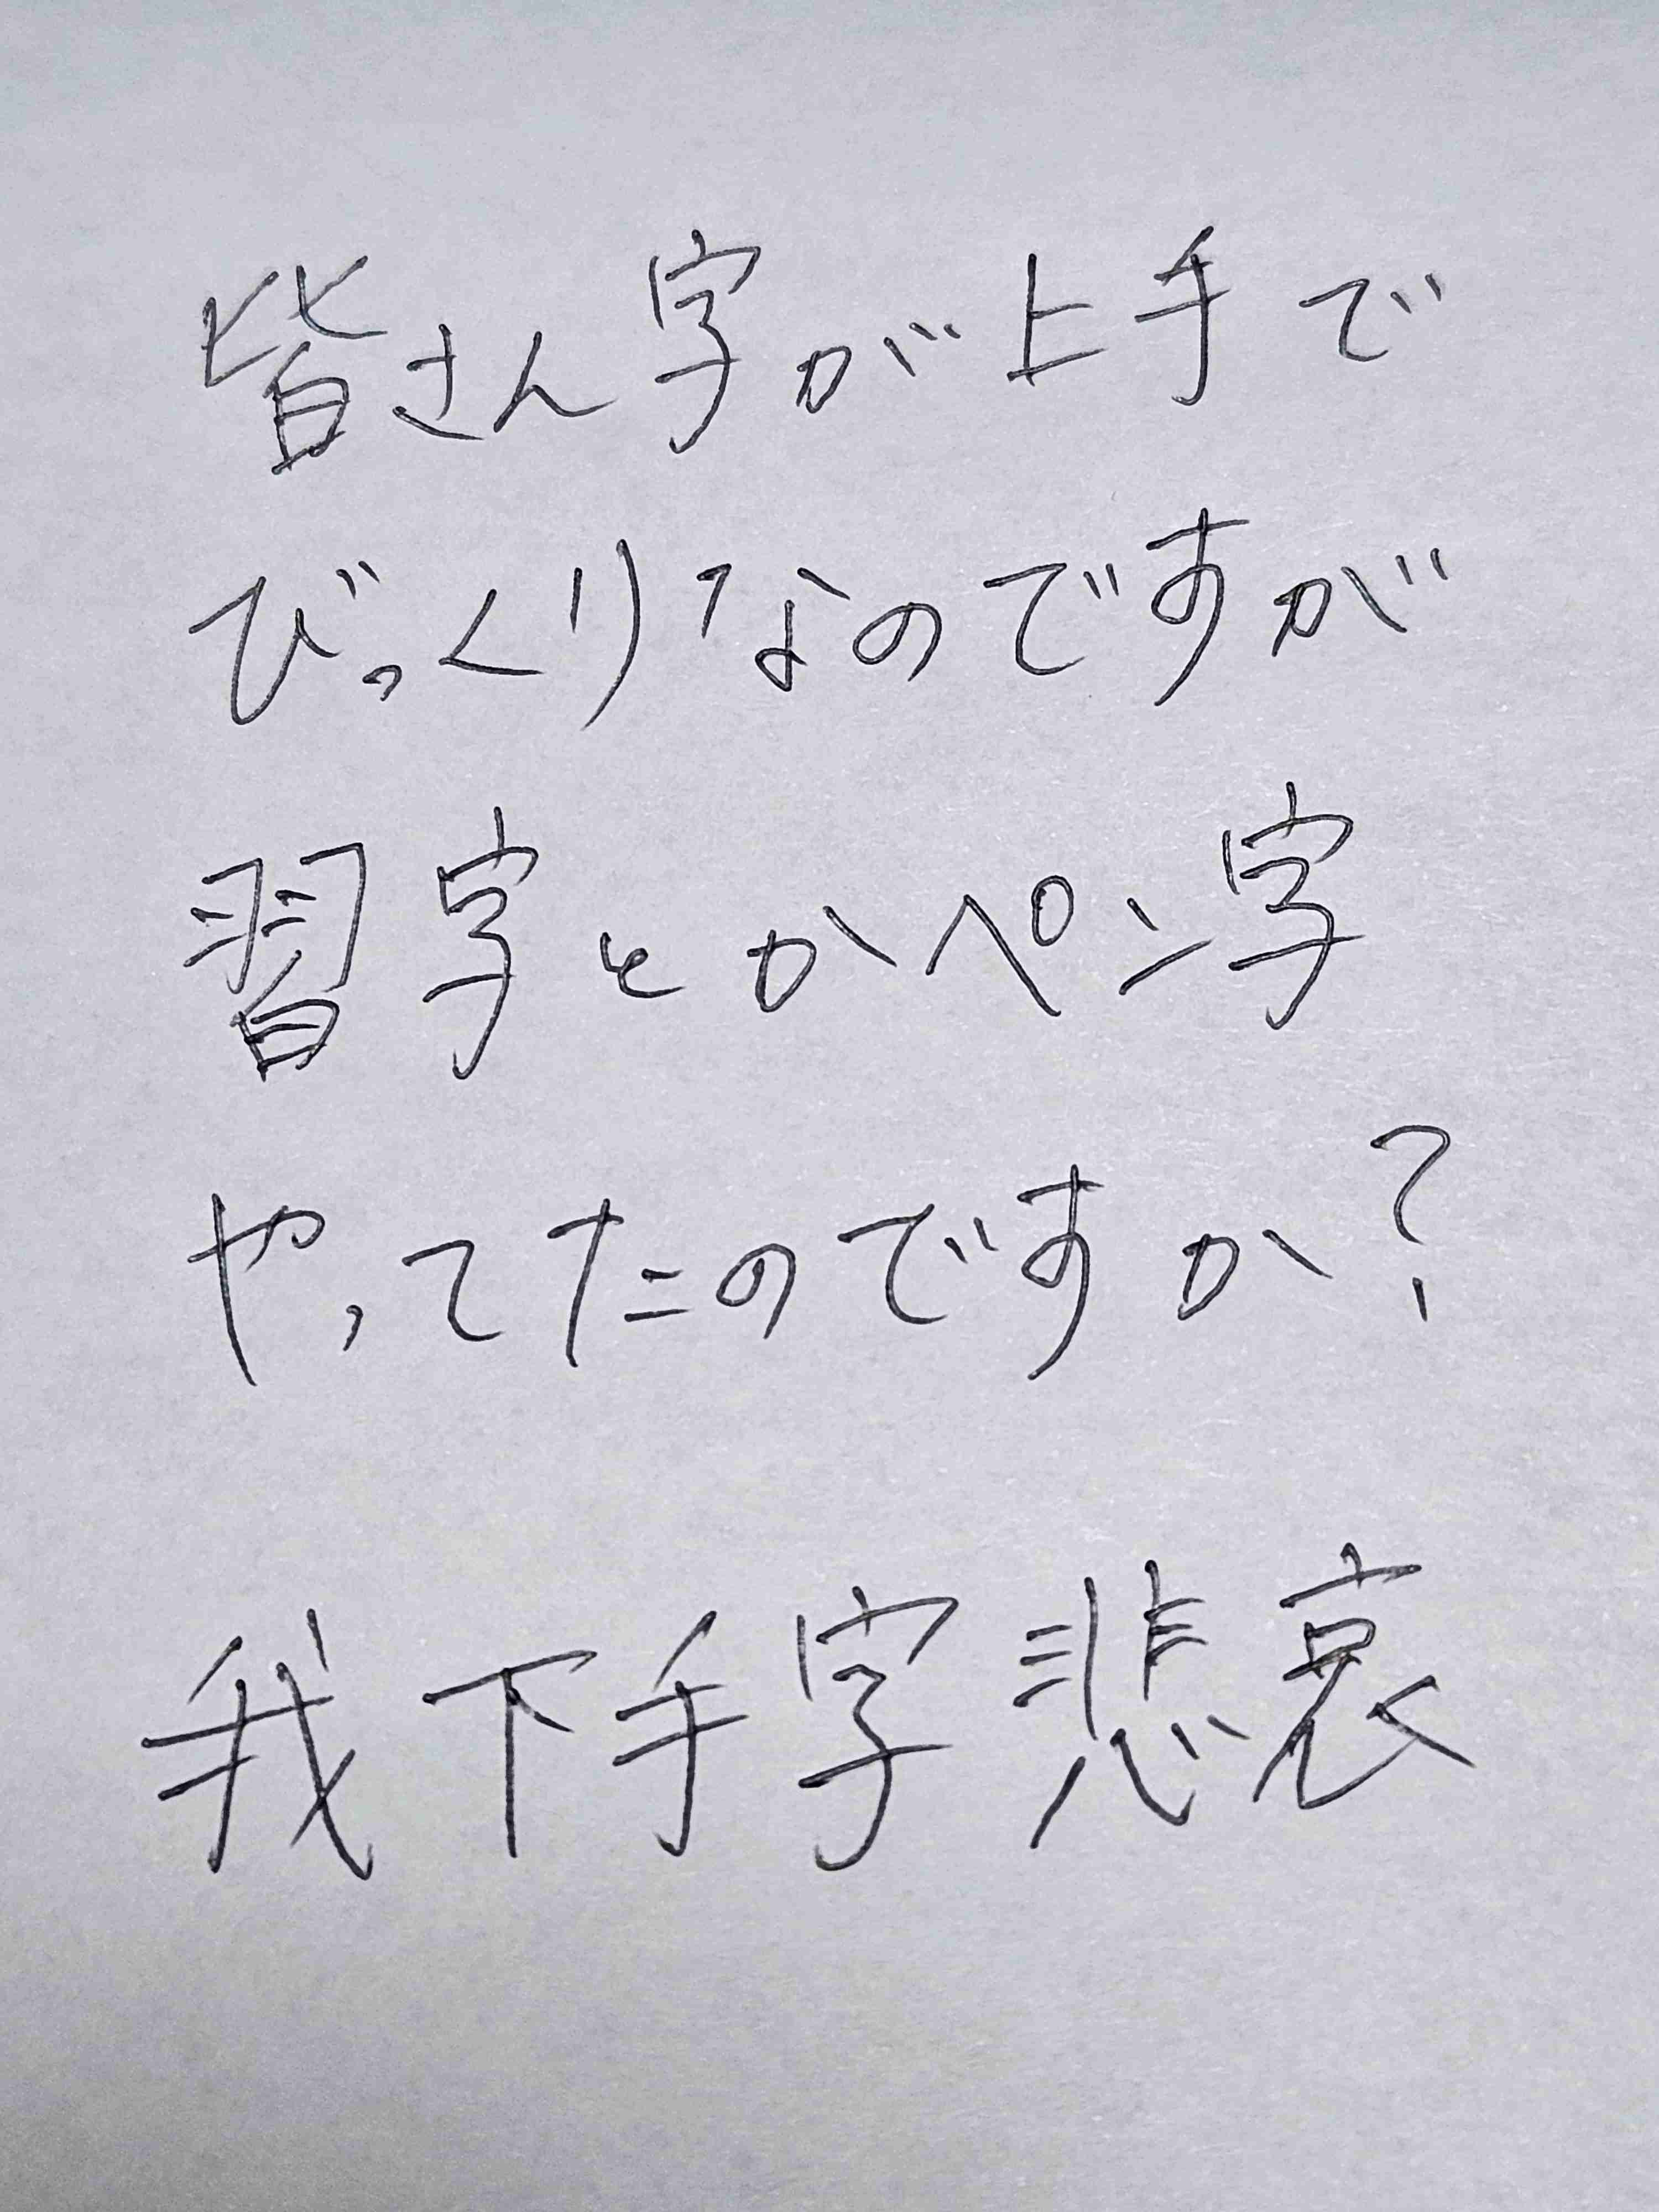 皆さん字が上手で
びっくりなのですが
習字とかペン字
やってたのですか?
我下手字悲哀